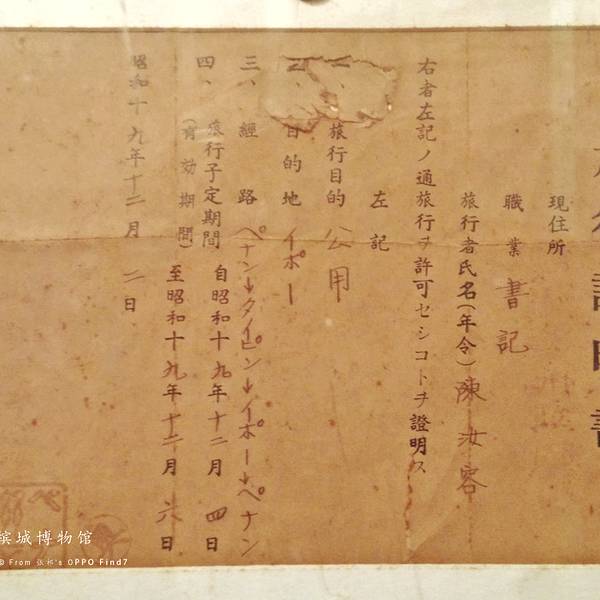 證明書
現住所
職業 書記
旅行者氏名(年令) 陳汝容
右者左記ノ通旅行ヲ許可セシコトヲ證明ス
左記
旅行目的 公用
目的地 イポー
三、經路 ペナン↓タイピン↓イポー↓ペナン
四、旅行予定期間 自昭和十九年十二月 四日
(有効期間) 至昭和十九年十二月 六日
昭和十九年十二月 二日
槟城博物馆
© From 's OPPO Find7